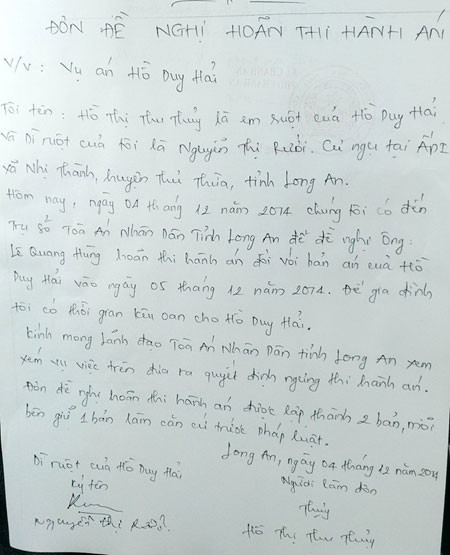 ĐƠN ĐỀ NGHỊ HOÃN THI HÀNH ÁN
V/v : Vụ án Hồ Duy Hải
Tôi tên : Hồ Thị Thu Thủy là em ruột của Hồ Duy Hải
Và Dì ruột của tôi là Nguyễn Thị Rưởi. Cư ngụ tại ẤP 1
xã Nhị Thành, huyện Thủ Thừa, tỉnh Long An.
Hôm nay, ngày 04 tháng 12 năm 2014 chúng tôi có đến
trụ sở Toà Án Nhân Dân Tỉnh Long An để đề nghị Ông :
Lê Quang Hùng hoãn thi hành án đối với bản án của Hồ
Duy Hải vào ngày 05 tháng 12 năm 2014. Để gia đình
tôi có thời gian kêu oan cho Hồ Duy Hải.
Kính mong Lãnh đạo Toà Án Nhân Dân tỉnh Long An xem
xém vụ việc trên đưa ra quyết định ngừng thi hành án.
Đơn đề nghị hoãn thi hành án được lập thành 2 bản, mỗi
bên giữ 1 bản làm căn cứ trước pháp luật.
Long An, ngày 04 tháng 12 năm 2014
Dì ruột của Hồ Duy Hải
Người làm đơn
Ký tên
Thủy
Nguyễn Thị Rưởi.
Hồ Thị Thu Thủy